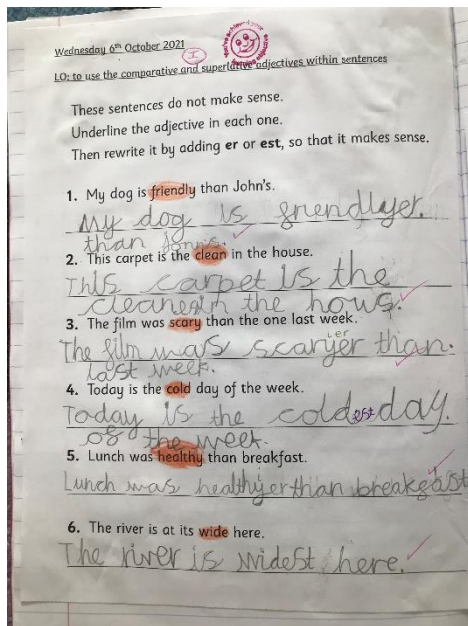 Wednesday 6th October 2021
I
LO: to use the comparative and superlative adjectives within sentences
These sentences do not make sense.
Underline the adjective in each one.
Then rewrite it by adding er or est, so that it makes sense.
1. My dog is friendly than John's.
My dog is friendlyer.
than John's.
2. This carpet is the clean in the house.
This carpet is the
cleanest in the hows.
3. The film was scary than the one last week.
ier
The film was scaryer than.
last week.
4. Today is the cold day of the week.
Today is the coldest day.
of the week.
5. Lunch was healthy than breakfast.
Lunch was healthyer than breakfast
6. The river is at its wide here.
The river is widest here.